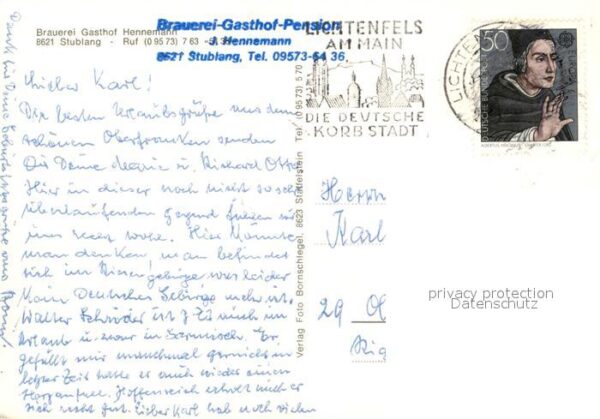 Brauerei Gasthof Hennemann
8621 Stublang · Ruf (0 95 73) 7 63
Brauerei-Gasthof-Pension
J. Hennemann
8621 Stublang, Tel. 09573-64 36
LICHTENFELS
AM MAIN
DIE DEUTSCHE
KORBSTADT
50
DEUTSCHE BUNDESPOST
Lieber Karl!
Die besten Urlaubsgrüße aus dem
schönen Oberfranken senden
Dir Deine Maria u. Richard Otte
Hier in dieser noch nicht so sehr
überlaufenden Gegend fühlen wir
uns sehr wohl. Hier könnte
man denken, man befindet
sich im Riesengebirge was leider
kein Deutsches Gebirge mehr ist.
Walter Schröder ist z. Zt auch im
Urlaub u. zwar in Garmisch. Er
gefällt mir manchmal garnicht in
letzter Zeit hatte er auch wieder einen
Herzanfall. Hoffentlich erholt er
sich recht gut. Lieber Karl hab noch vielen
Dank für Deine
aus
Verlag Foto Bornschlegel, 8623 Staffelstein Tel. (0 95 73) 5 70
Herrn
Karl
29 Ol
privacy protection
Datenschutz